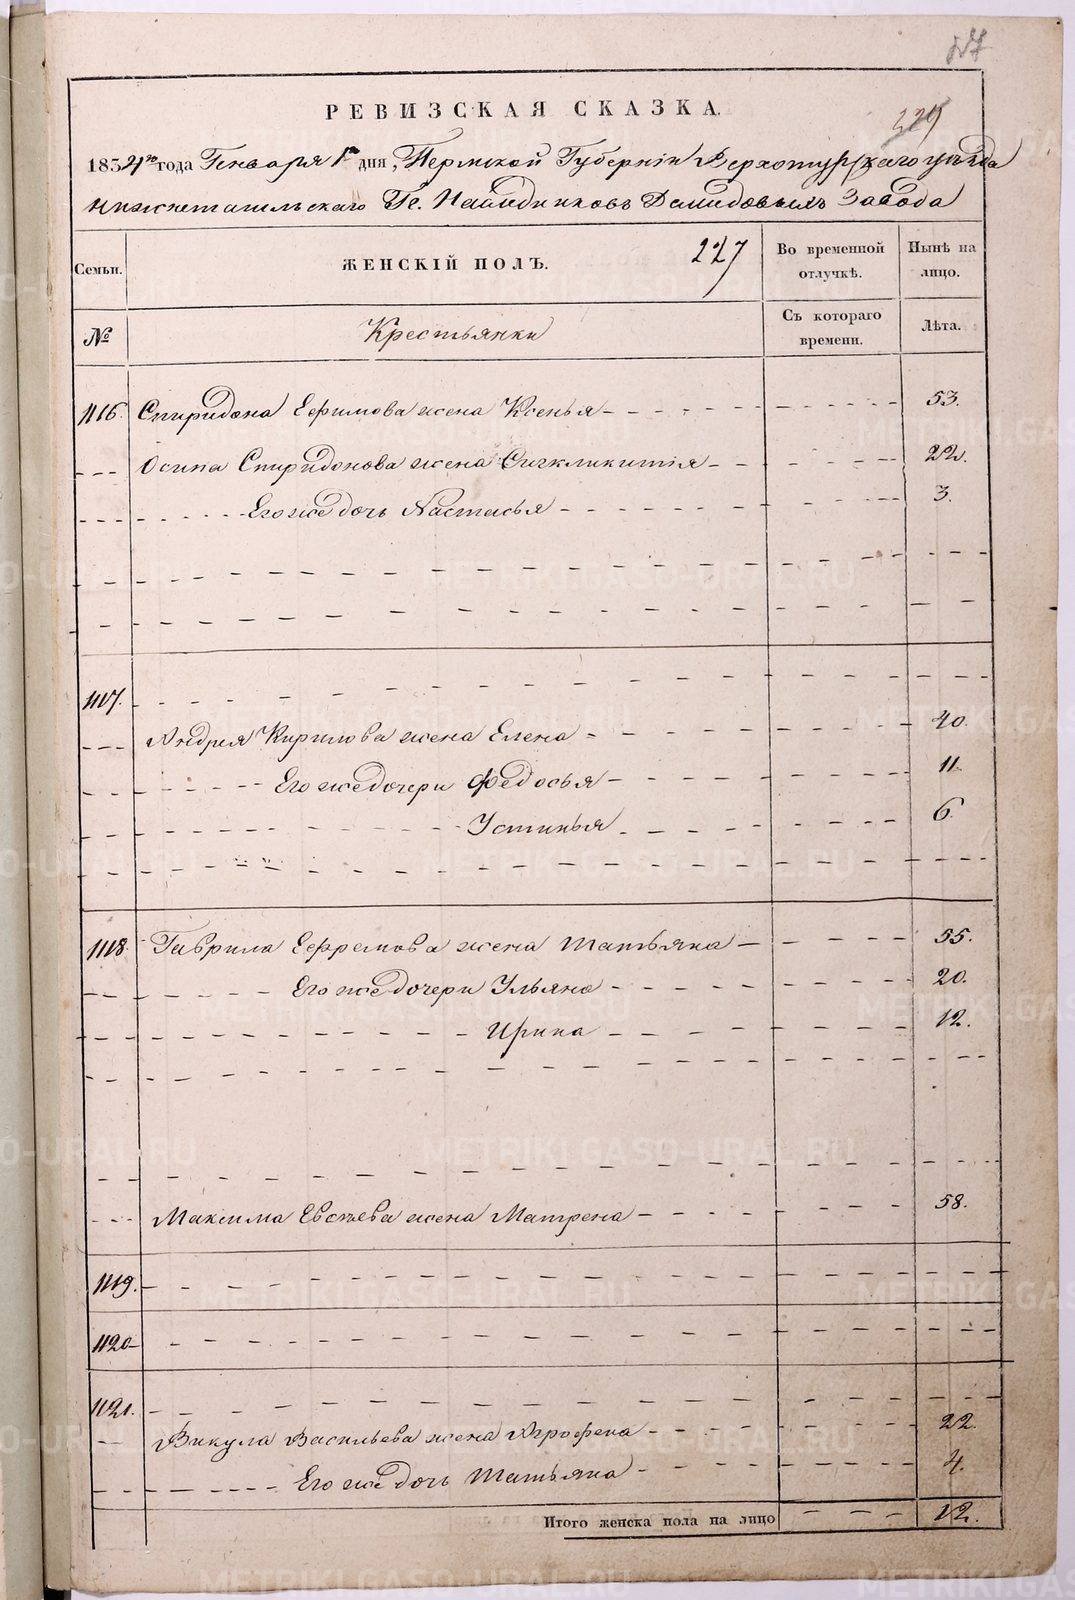 РЕВИЗСКАЯ СКАЗКА.
229
1834го года Генваря 1го дня, Пермской Губернiи Верхотурскаго уѣзда
Нижнетагильскаго Гг. Наследниковъ Демидовыхъ Завода
Семьи.
ЖЕНСКIЙ ПОЛЪ.
227
Во временной отлучкѣ.
Нынѣ на лицо.
№
Крестьянки
Съ котораго времени.
Лѣта.
1116. Спиридона Ефимова жена Ксенья 53.
Осипа Спиридонова жена 22.
Его же дочь Настасья 3.
1117.
Андрея Кирилова жена Елена 40.
Его же дочери Федосья 11
Устинья 6.
1118. Гаврила Ефремова жена Татьяна 55.
Его же дочери Ульяна 20.
Ирина 12.
Максима Евсѣева жена Матрена 58.
1119.
1120
1121.
Викула Васильева жена Агрофена 22.
Его же дочь Татьяна 4.
Итого женска пола на лицо 12.
METRIKI.GASO-URAL.RU